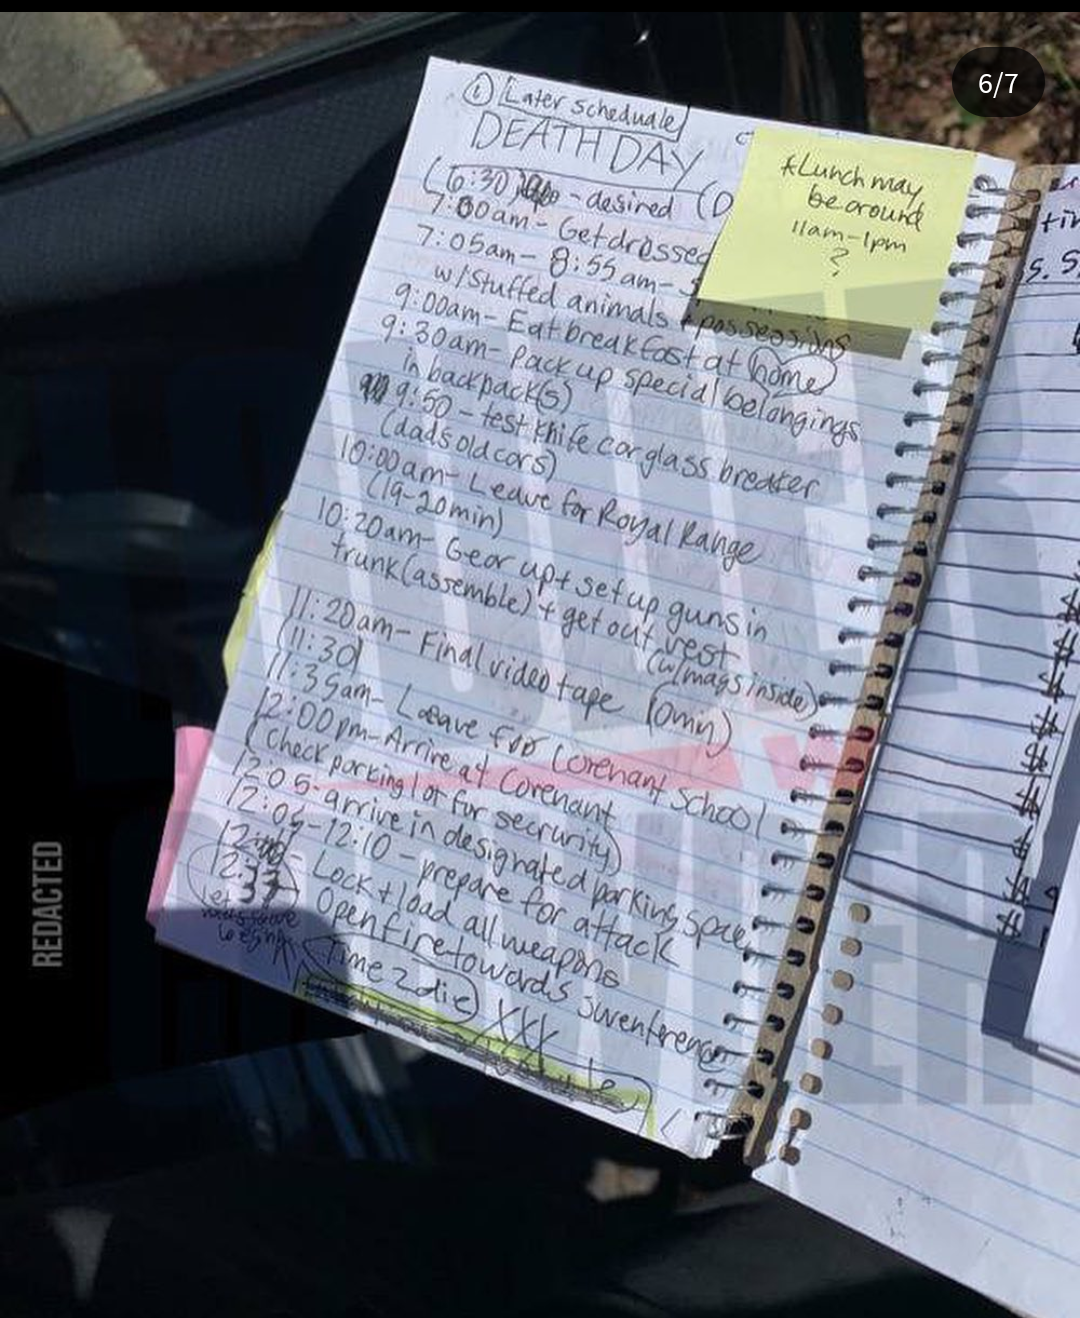 6/7
① Later scheduale
DEATH DAY
(6:30) - desired (D
7:00am- Get dressed
7:05am- 8:55am- S
w/stuffed animals + possessions
9:00am- Eat breakfast at home
9:30am- Pack up special belongings
in backpack(s)
9:50 - test knife car glass breaker
(dads old cars)
10:00am- Leave for Royal Range
(19-20min)
10:20am- Gear up + set up guns in
trunk (assemble) + get out vest
(w/mags inside)
11:20am- Final video tape (0min)
(11:30)
11:35am- Leave for Covenant School
12:00pm- Arrive at Covenant
(check parking lot for secrurity)
12:05- arrive in designated parking space
12:06-12:10 - prepare for attack
Lock + load all weapons
12:33 Open fire towards
Time 2 die XXX
*Lunch may
be around
11am-1pm
?
REDACTED